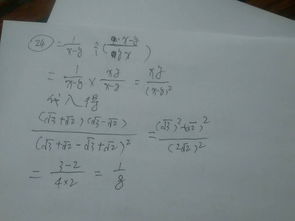 (24) = 1/(x-y) ÷ (x-y/yx)
= 1/(x-y) × xy/(x-y) = xy/(x-y)²
代入得
(√3+√2)(√3-√2)/(√3+√2-√3+√2)² = (√3)²-(√2)²/(2√2)²
= 3-2/4×2 = 1/8